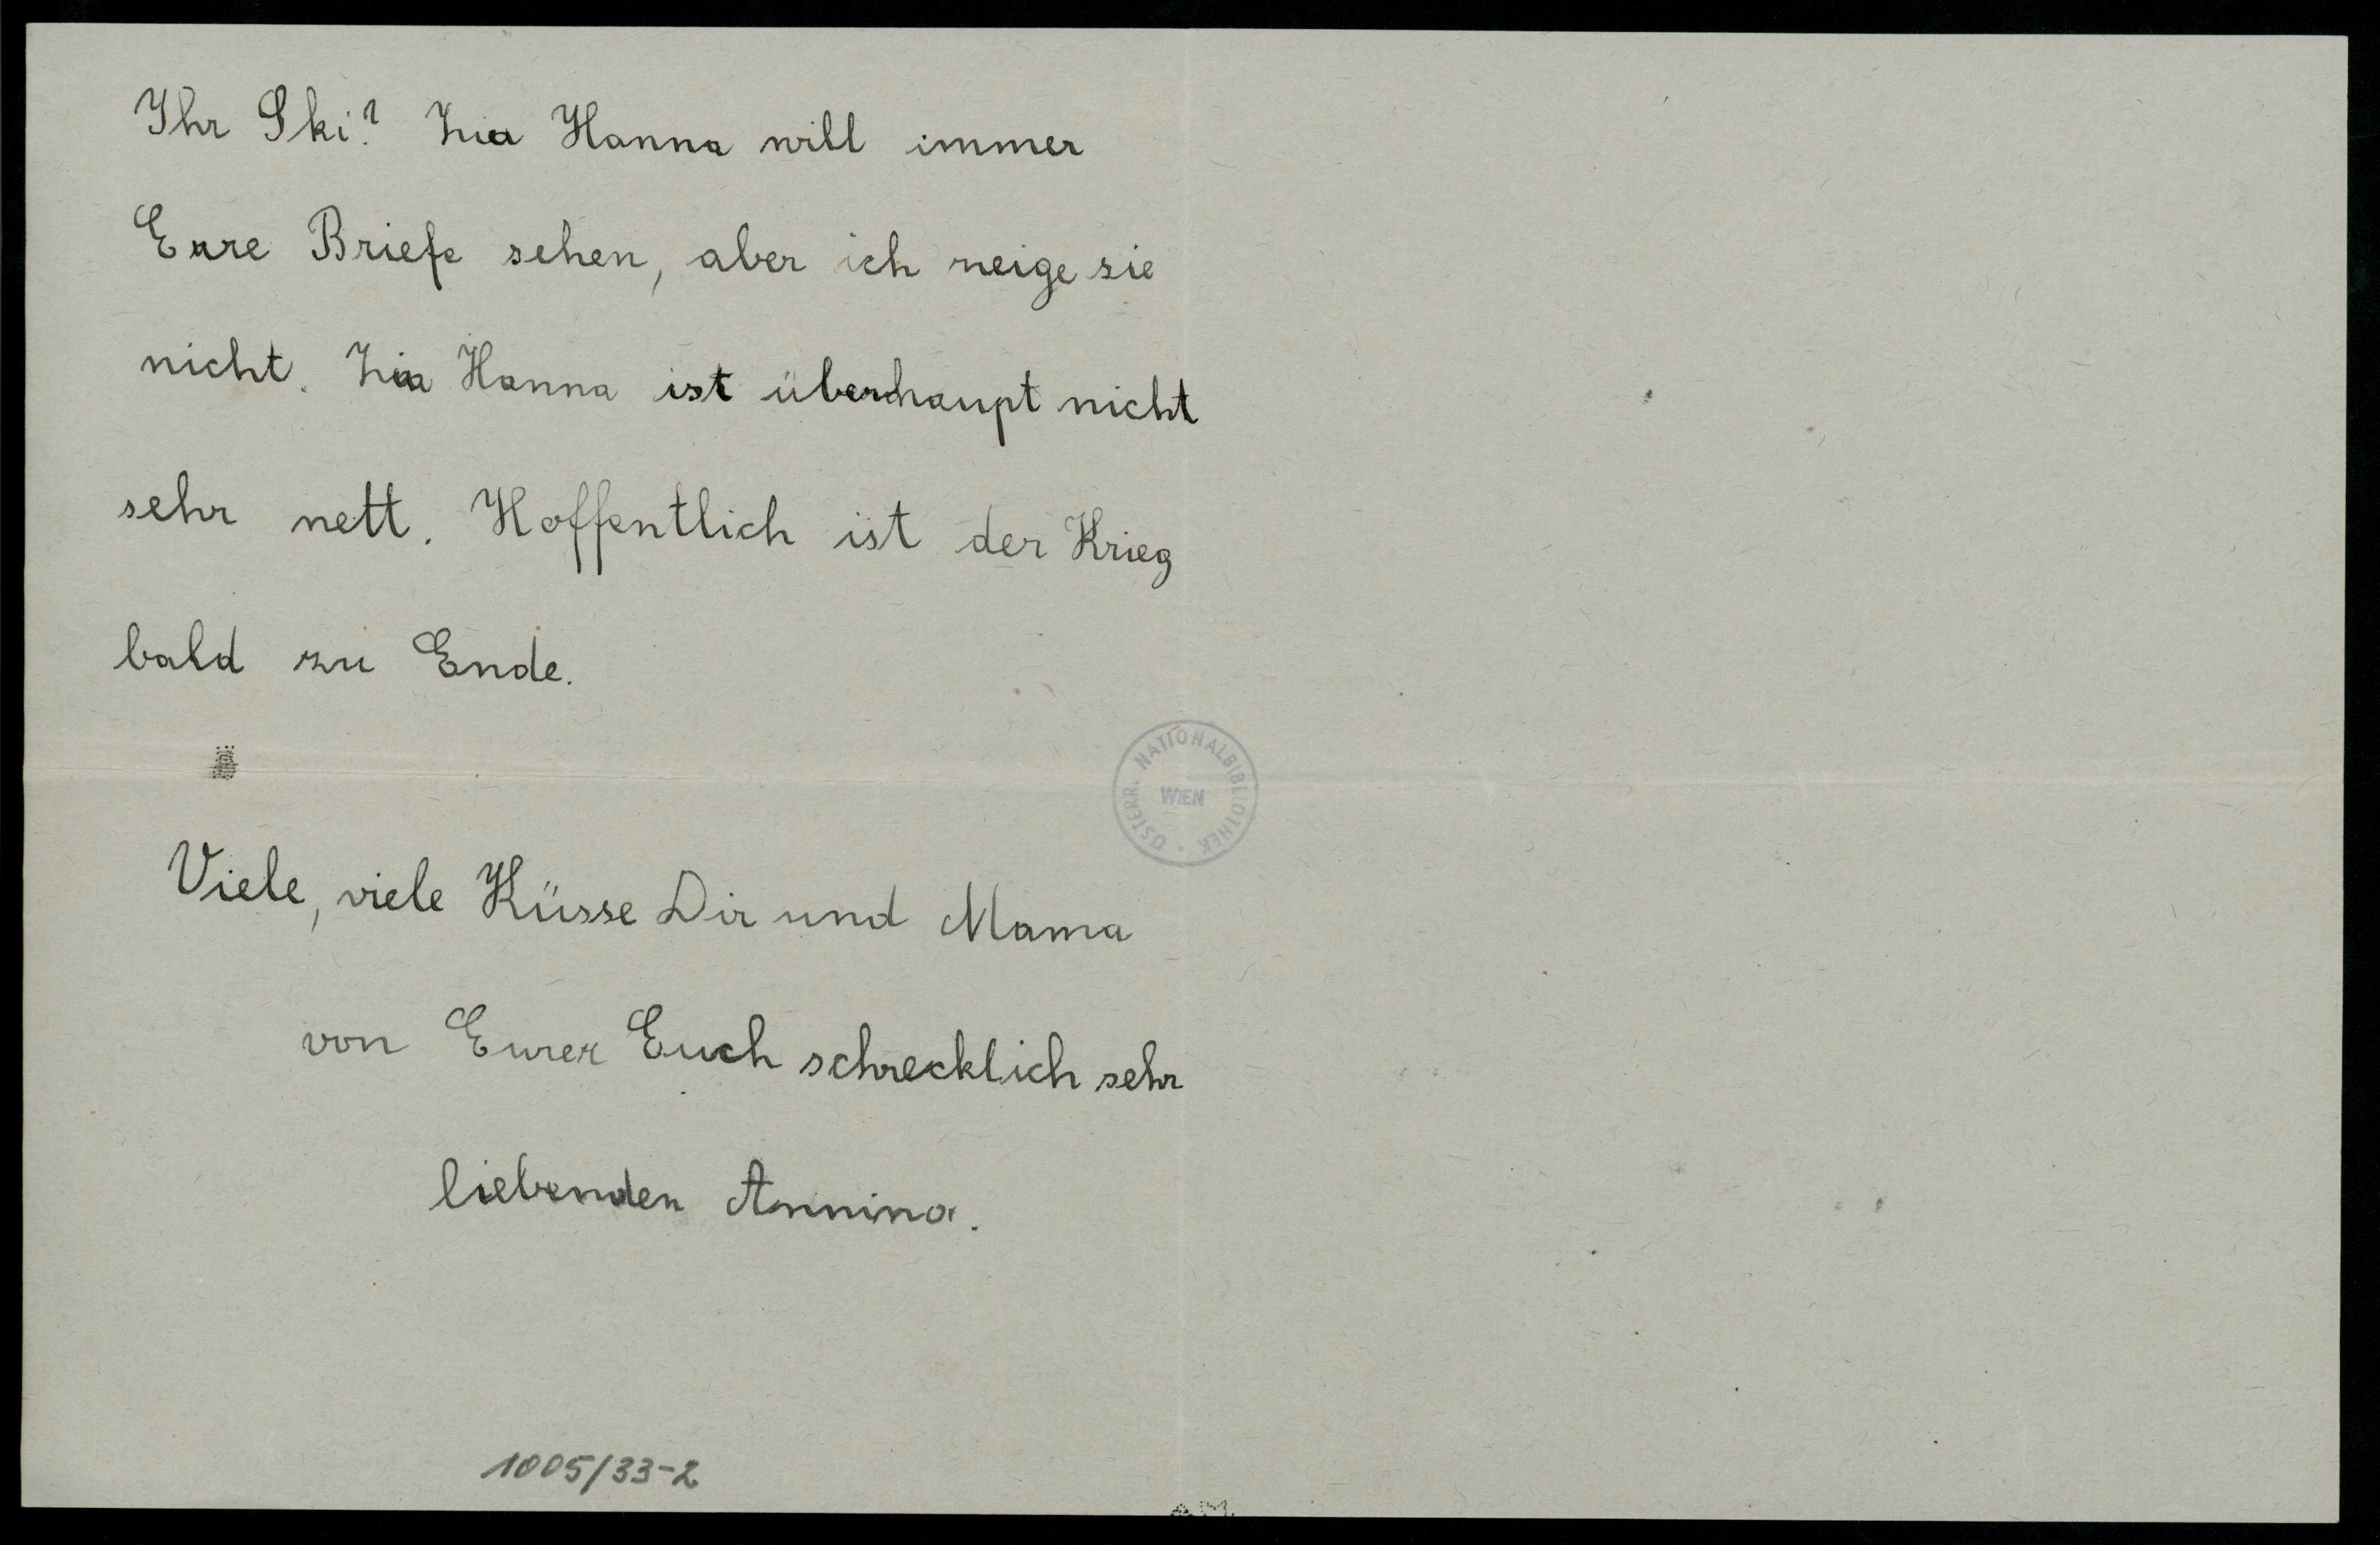 Ihr Ski? Zia Hanna will immer
Eure Briefe sehen, aber ich zeige sie
nicht. Zia Hanna ist überhaupt nicht
sehr nett. Hoffentlich ist der Krieg
bald zu Ende.
ÖSTERR. NATIONALBIBLIOTHEK
WIEN
Viele, viele Küsse Dir und Mama
von Eurer Euch schrecklich sehr
liebenden Annina.
1005/33-2